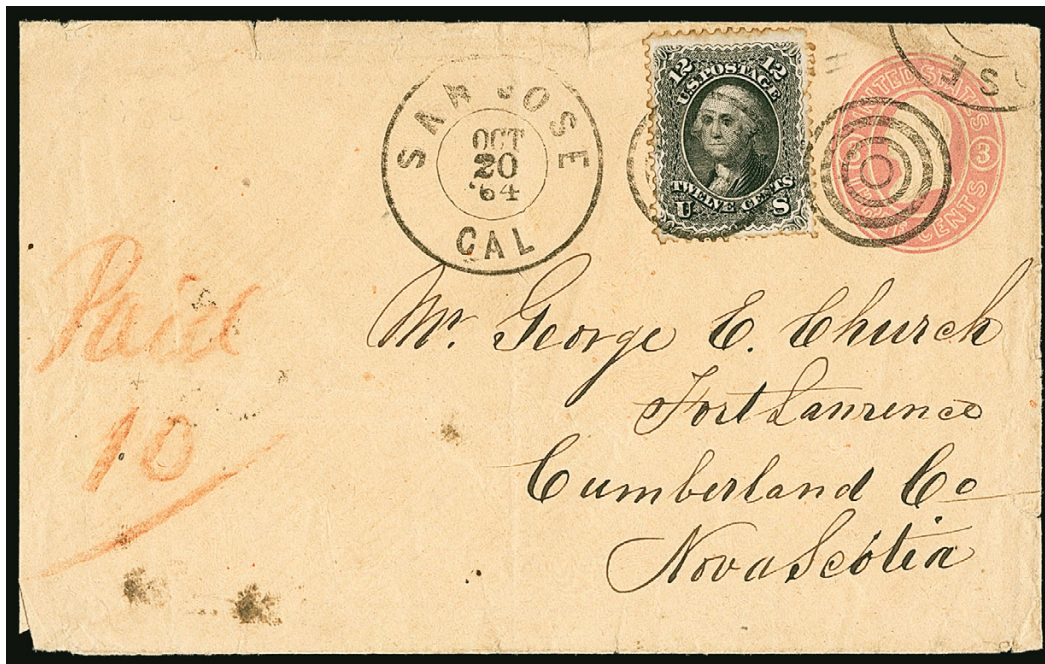 SAN JOSE
OCT
20
'64
CAL
12 12
U.S. POSTAGE
TWELVE CENTS
U S
SE
UNITED STATES
3 3
THREE CENTS
Paid
10
Mr. George E. Church
Fort Lawrence
Cumberland Co
Nova Scotia